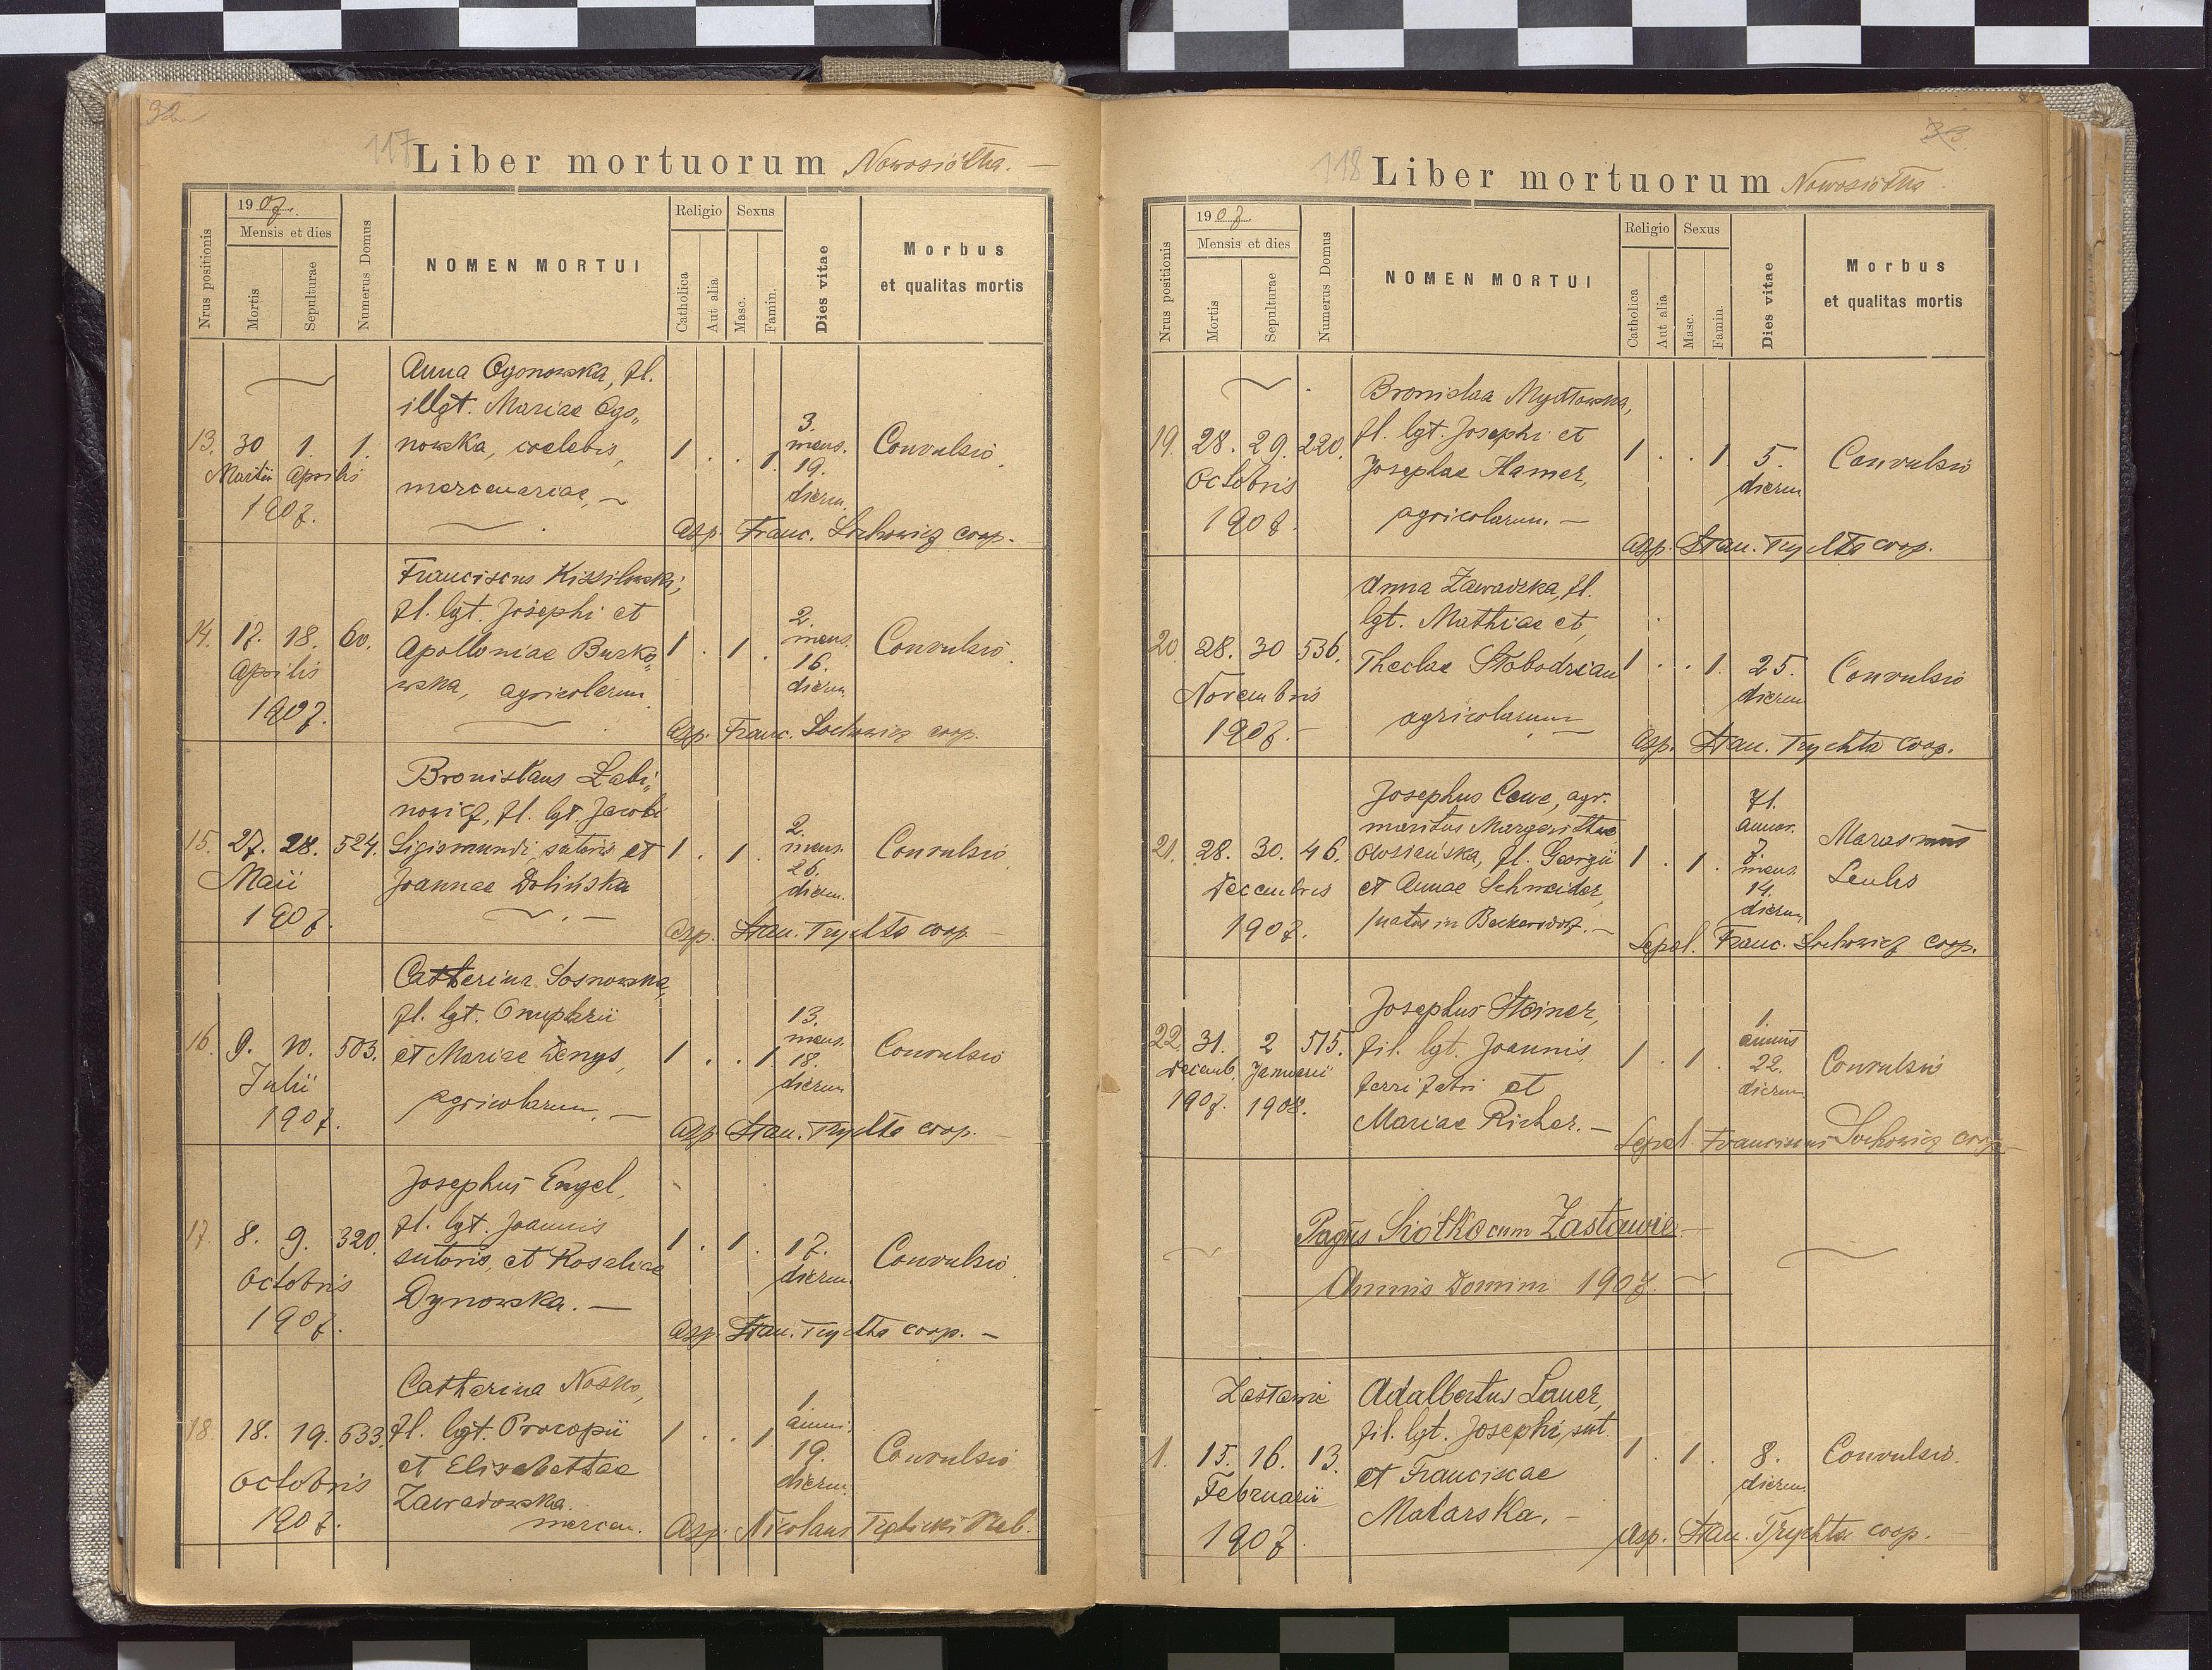 32
117 Liber mortuorum Nowosiółka. —
Nrus positionis
1907.
Mensis et dies
Mortis
Sepulturae
Numerus Domus
NOMEN MORTUI
Religio
Catholica
Aut alia
Sexus
Masc.
Famin.
Dies vitae
Morbus
et qualitas mortis
Anna Ogonowska, fl.
illgt. Mariae Ogo„
nowska, coelebis,
mercenariae, —
13. 30 1. 1.
Martii Aprilis
1907.
1 . . 1.
3.
mens.
19.
dierum.
Convulsio.
Asp. Franc. Sochowicz coop.
Franciscus Kissilowski,
fl. lgt. Josephi et
Apolloniae Burko„
wska, agricolarum.
14. 17. 18. 60.
Aprilis
1907.
1 . 1 .
2.
mens.
16.
dierum.
Convulsio.
Asp. Franc. Sochowicz coop.
Bronisłaus Łabi„
nowicz, fl. lgt. Jacobi
Sigismundi, sutoris et
Joannae Dolińska
15. 27. 28. 524.
Maii
1907.
1 . 1 .
2.
mens.
26.
dierum.
Convulsio.
Asp. Stan. Trychta coop. —
Catherina Sosnowska,
fl. lgt. Onuphrii
et Mariae Denys,
agricolarum. —
16. 9. 10. 503.
Julii
1907.
1 . . 1.
13.
mens.
18.
dierum
Convulsio
Asp. Stan. Trychta coop. —
Josephus Engel,
fl. lgt. Joannis
sutoris, et Rosaliae
Dynowska. —
17. 8. 9. 320.
Octobris
1907.
1 . 1 .
17.
dierum.
Convulsio.
Asp. Stan. Trychta coop. —
Catherina Nosko,
fl. lgt. Procopii
et Elisabethae
Zawadowska.
mercen.
18. 18. 19. 633.
Octobris
1907.
1 . . 1
1
anni.
19.
dierum.
Convulsio
Asp. Nicolaus
33.
118 Liber mortuorum Nowosiółka
Nrus positionis
1907
Mensis et dies
Mortis
Sepulturae
Numerus Domus
NOMEN MORTUI
Religio
Catholica
Aut alia
Sexus
Masc.
Famin.
Dies vitae
Morbus
et qualitas mortis
Bronislaa Mydłowska,
fl. lgt. Josephi et
Josephae Hamer,
agricolarum. —
19. 28. 29. 220.
Octobris
1907.
1 . . 1
5.
dierum
Convulsio
Asp. Stan. Trychta coop.
Anna Zawadzka, fl.
lgt. Mathiae et
Theclae Słobodzian
agricolarum
20. 28. 30 536.
Novembris
1907. —
1 . . 1.
25.
dierum
Convulsio
Asp. Stan. Trychta coop.
Josephus Cewe, agr.
maritus Margarithae
fl. Georgii
et Annae Schneider,
natus in Beckersdorf. —
21. 28. 30. 46.
Decembris
1907.
1 . 1 .
71.
annor.
7.
mens.
14.
dierum
Marasmus
Senilis
Sepel. Franc. Sochowicz coop.
Josephus Steiner,
fil. lgt. Joannis,
ferri fabri et
Mariae Richer. —
22. 31. 2 515.
Decemb. Januarii
1907. 1908.
1 . 1 .
1.
annus
22.
dierum
Convulsio
Sepel. Franciscus Sochowicz coop.
Pagus Siółko cum Zastawie —
Annis Domini 1907. —
Zastawie
Adalbertus Lauer,
fil. lgt. Josephi, sut.
et Franciscae
Matarska. —
1. 15. 16. 13.
Februarii
1907.
1 . 1 .
8.
dierum
Convulsio.
Asp. Stan. Trychta coop.